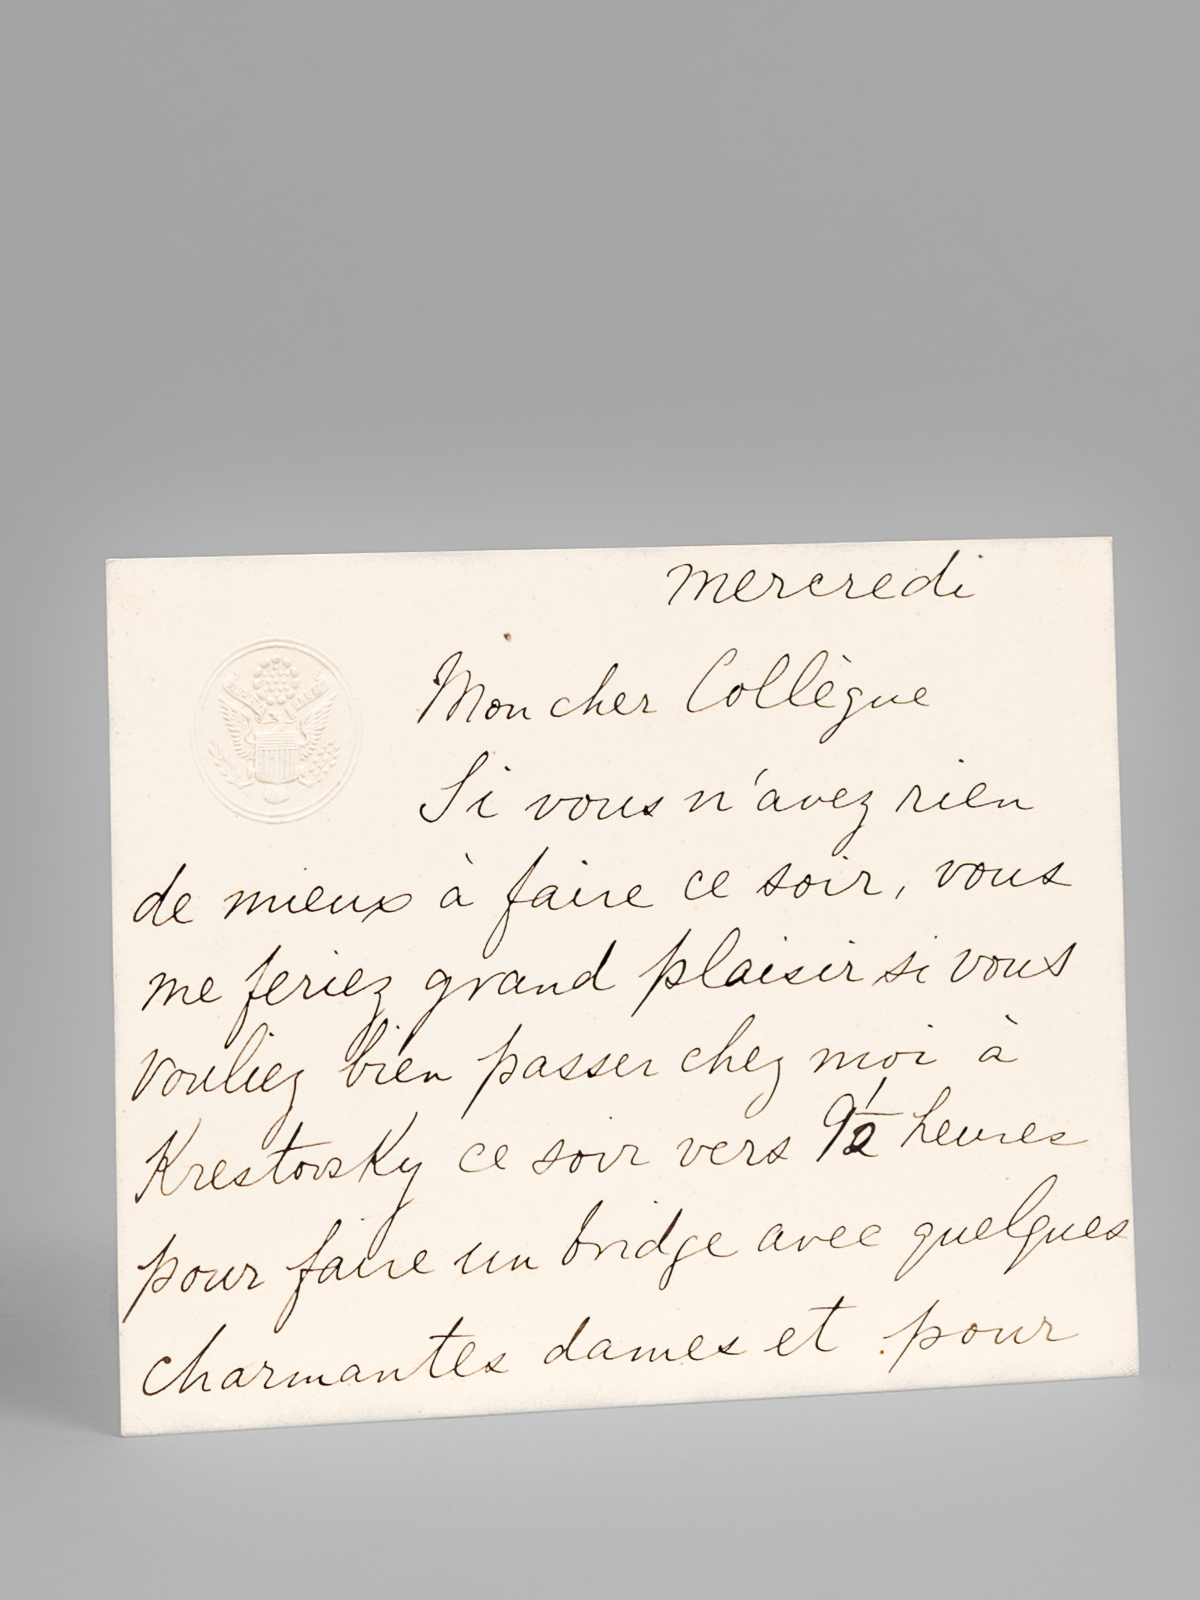 mercredi
Mon cher Collègue
Si vous n'avez rien
de mieux à faire ce soir, vous
me feriez grand plaisir si vous
vouliez bien passer chez moi à
Krestovsky ce soir vers 9 1/2 heures
pour faire un bridge avec quelques
charmantes dames et pour